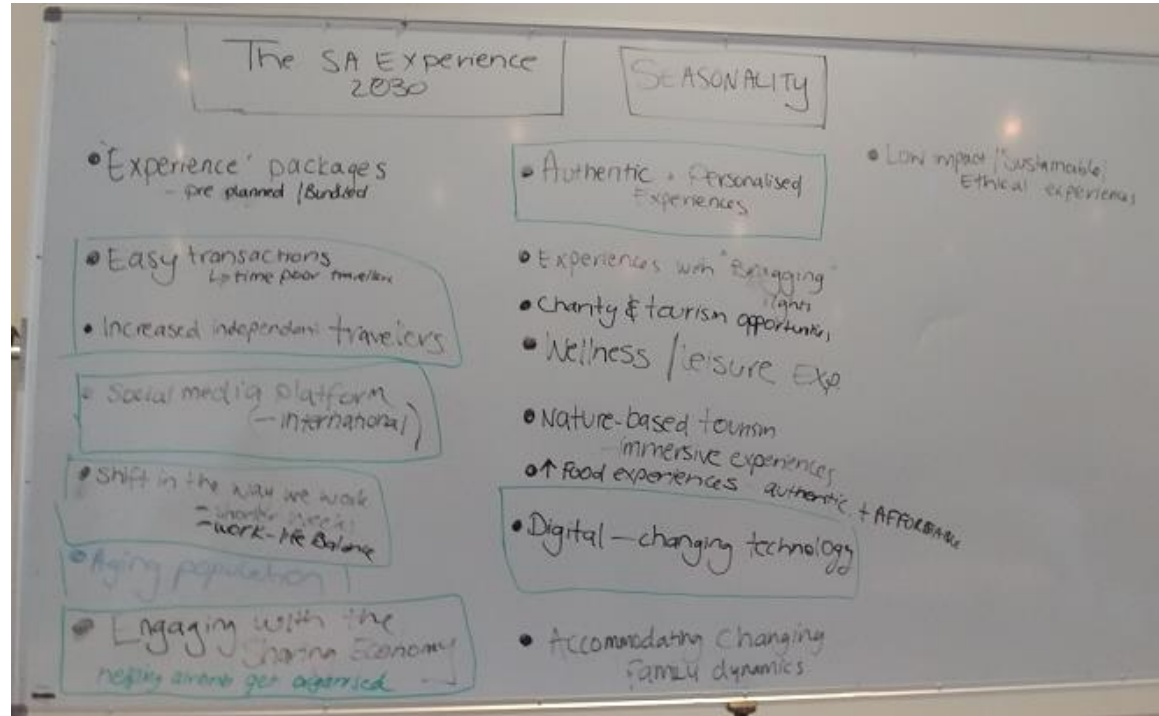 The SA Experience
2030
• 'Experience' packages
- pre planned / Bundled
• Easy transactions
↳ time poor travellers
• Increased independent travelers
• Social media platform
(– international)
• Shift in the way we work
- shorter weeks
- work-life Balance
• Aging population
• Engaging with the
Sharing Economy
helping airbnb get organised
SEASONALITY
• Authentic + Personalised
Experiences
• Experiences with "Bragging"
rights
• Charity & tourism opportunities
• Wellness / leisure Exp
• Nature-based tourism
- immersive experiences
• ↑ Food experiences authentic + AFFORDABLE
• Digital – changing technology
• Accommodating Changing
Family dynamics
• Low impact / Sustainable /
Ethical experiences